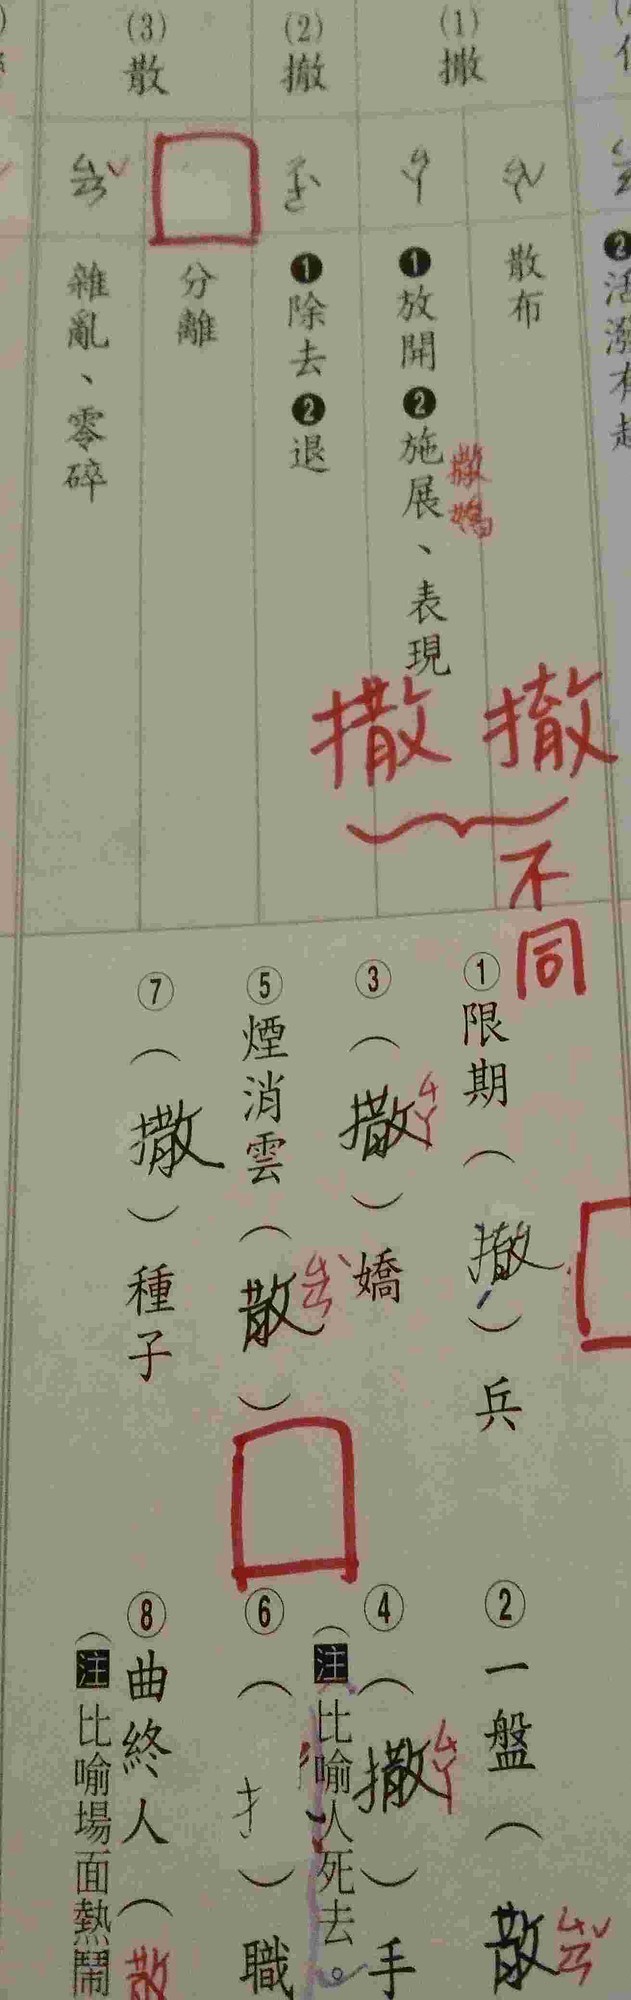 (1)撒
ㄙㄚˇ
散布
ㄙㄚ
❶放開❷施展、表現
撒嬌
(2)撤
❶除去❷退
(3)散
分離
ㄙㄢˇ
雜亂、零碎
❷活潑有趣
撤
撒
不同
①限期（撤）兵
②一盤（散
ㄙㄢˇ
③（撒）嬌
ㄙㄚ
④（撒）手
ㄙㄚ
（注比喻人死去。
⑤煙消雲（散）
ㄙㄢˋ
⑥（扌）職
⑦（撒）種子
⑧曲終人（散
（注比喻場面熱鬧